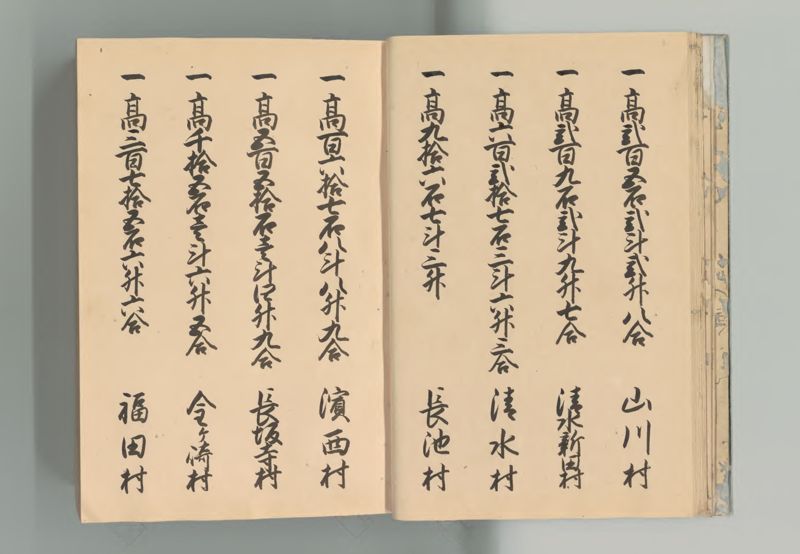 一高弐百五石弐斗弐升八合 山川村
一高弐百九石弐斗九升七合 清水新田村
一高六百弐拾七石三斗六升三合 清水村
一高九拾六石七斗三升 長池村
一高百六拾七石八斗八升九合 濱西村
一高五百五拾石壱斗四升九合 長坂寺村
一高千拾五石壱斗六升五合 金ヶ崎村
一高三百七拾五石六升六合 福田村